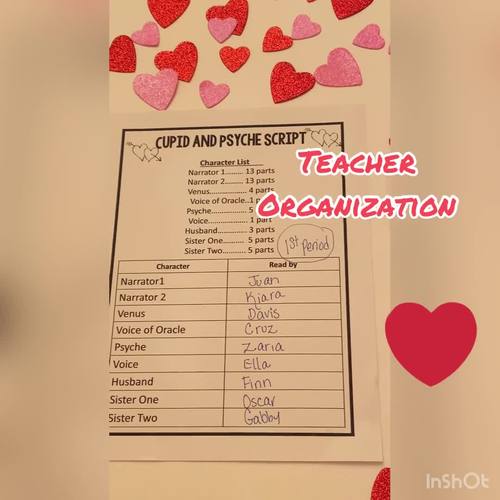 CUPID AND PSYCHE SCRIPT
Character List
Narrator 1........ 13 parts
Narrator 2........ 13 parts
Venus.................. 4 parts
Voice of Oracle..1 p
Psyche............... 5
Voice................. 1 part
Husband............ 3 parts
Sister One......... 5 parts
Sister Two......... 5 parts
1st period
TEACHER
ORGANIZATION
Character Read by
Narrator1 Juan
Narrator 2 Kiara
Venus Davis
Voice of Oracle Cruz
Psyche Zaria
Voice Ella
Husband Finn
Sister One Oscar
Sister Two Gabby
InShOt